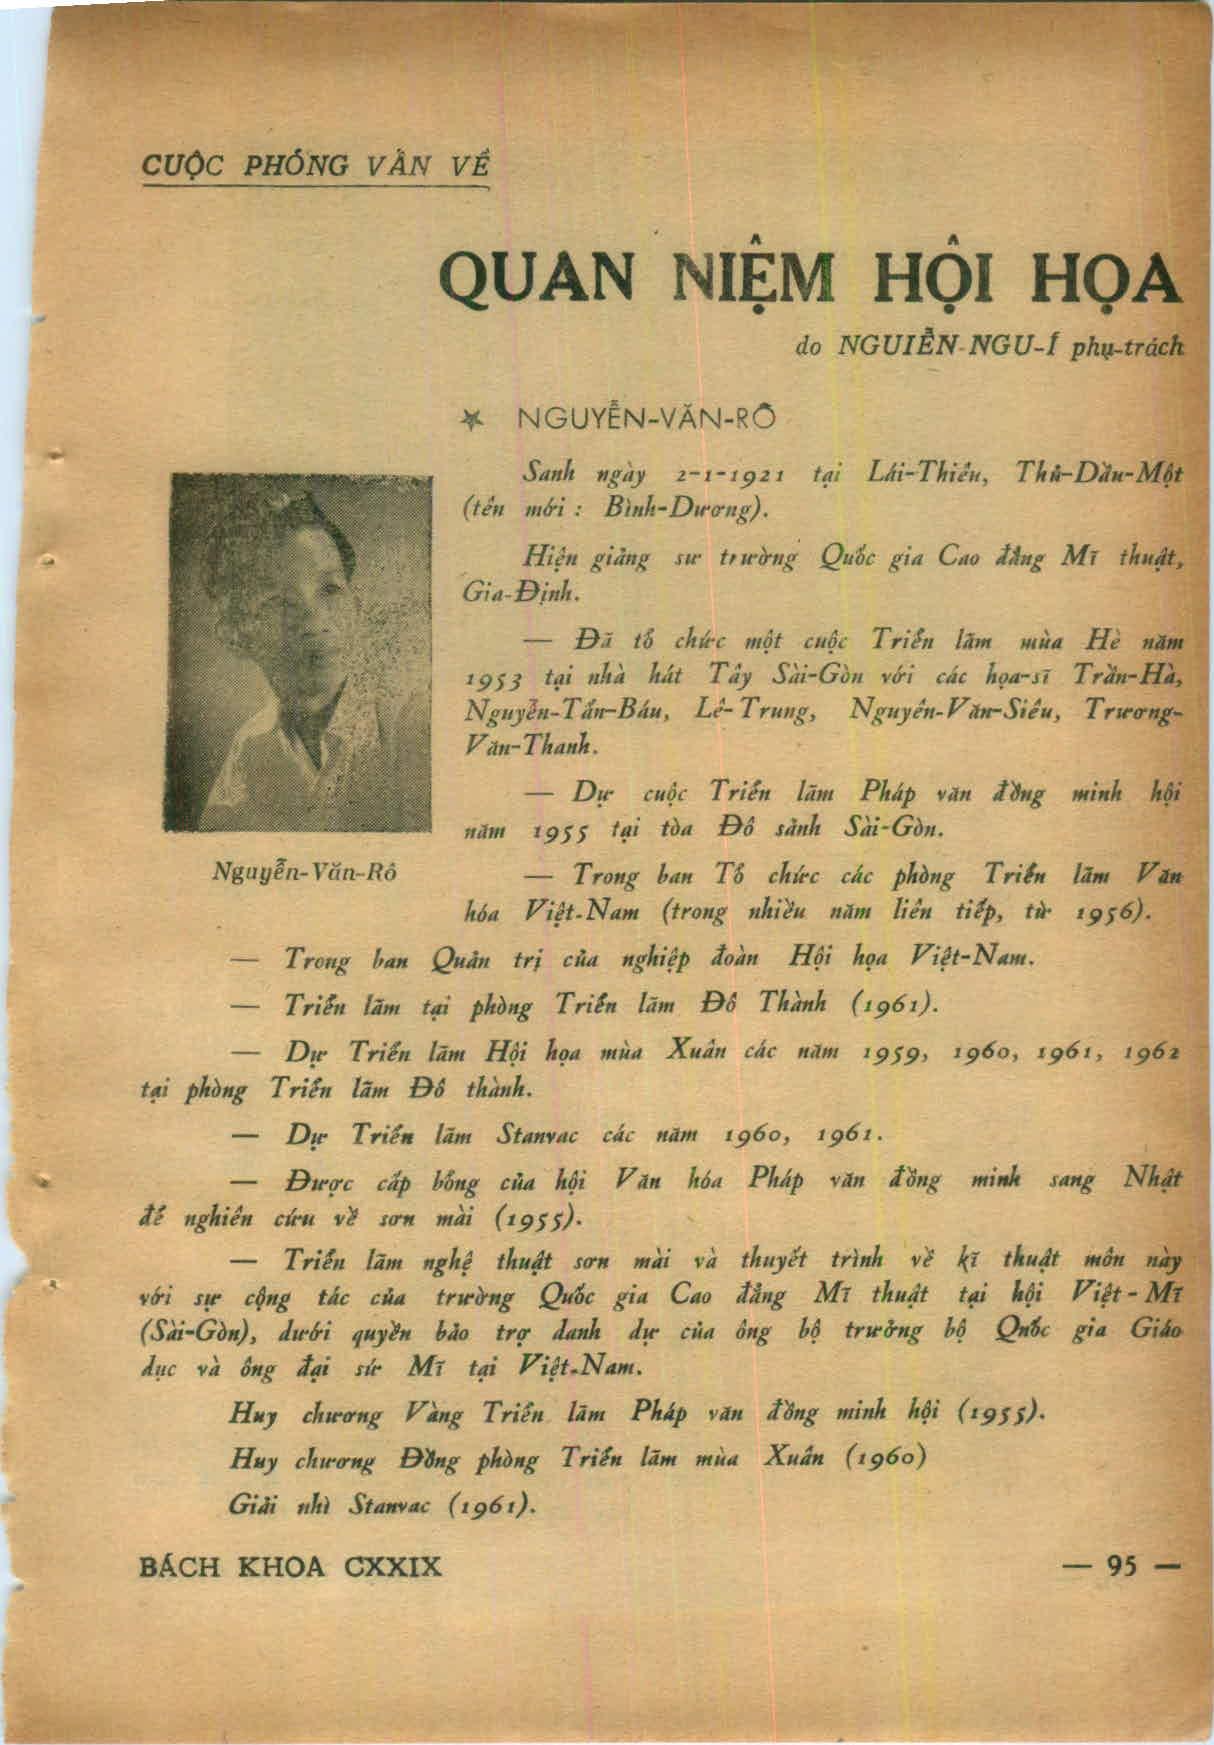 CUỘC PHỎNG VẤN VỀ
QUAN NIỆM HỘI HỌA
do NGUIỄN-NGU-Í phụ-trách
★ NGUYỄN-VĂN-RÔ
Sanh ngày 2-1-1921 tại Lái-Thiêu, Thủ-Dầu-Một
(tên mới : Bình-Dương).
Hiện giảng sư trường Quốc gia Cao đẳng Mĩ thuật,
Gia-Định.
— Đã tổ chức một cuộc Triển lãm mùa Hè năm
1953 tại nhà hát Tây Sài-Gòn với các họa-sĩ Trần-Hà,
Nguyễn-Tấn-Báu, Lê-Trung, Nguyên-Văn-Siêu, Trương-
Văn-Thanh.
— Dự cuộc Triển lãm Pháp văn đồng minh hội
năm 1955 tại tòa Đô sảnh Sài-Gòn.
Nguyễn-Văn-Rô
— Trong ban Tổ chức các phòng Triển lãm Văn
hóa Việt-Nam (trong nhiều năm liên tiếp, từ 1956).
— Trong ban Quản trị của nghiệp đoàn Hội họa Việt-Nam.
— Triển lãm tại phòng Triển lãm Đô Thành (1961).
— Dự Triển lãm Hội họa mùa Xuân các năm 1959, 1960, 1961, 1962
tại phòng Triển lãm Đô thành.
— Dự Triển lãm Stanvac các năm 1960, 1961.
— Được cấp bổng của hội Văn hóa Pháp văn đồng minh sang Nhật
để nghiên cứu về sơn mài (1955).
— Triển lãm nghệ thuật sơn mài và thuyết trình về kĩ thuật môn này
với sự cộng tác của trường Quốc gia Cao đẳng Mĩ thuật tại hội Việt-Mĩ
(Sài-Gòn), dưới quyền bảo trợ danh dự của ông bộ trưởng bộ Quốc gia Giáo
dục và ông đại sứ Mĩ tại Việt-Nam.
Huy chương Vàng Triển lãm Pháp văn đồng minh hội (1955).
Huy chương Đồng phòng Triển lãm mùa Xuân (1960)
Giải nhì Stanvac (1961).
BÁCH KHOA CXXIX
— 95 —